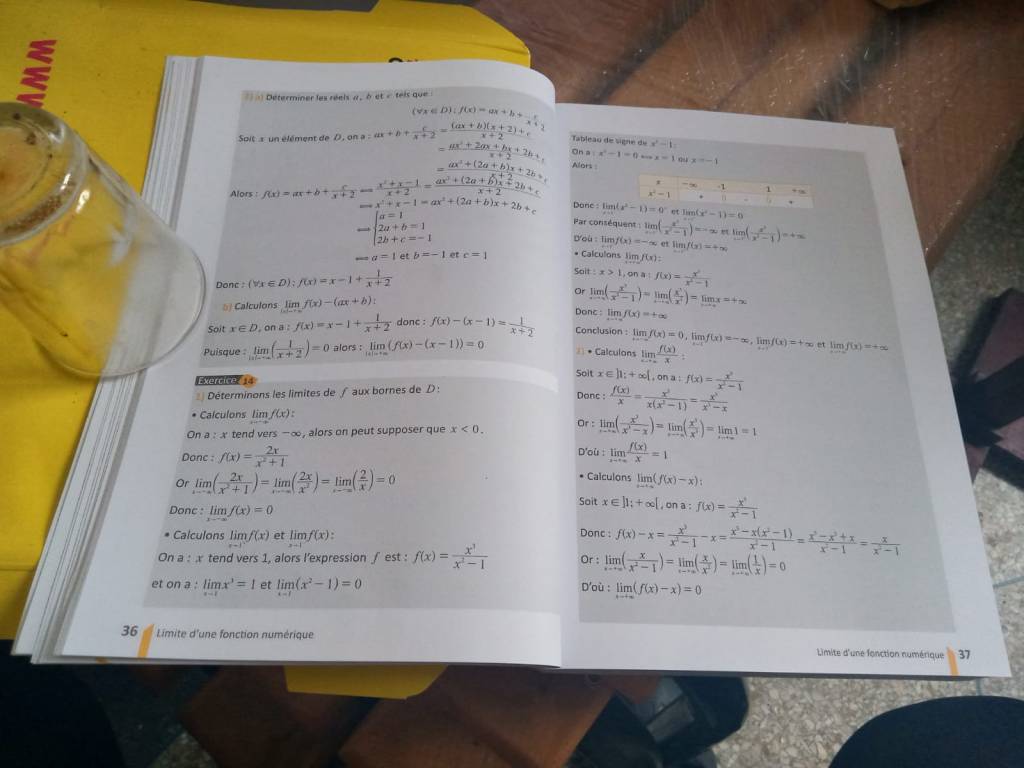 WWW
2) a) Déterminer les réels a, b et c tels que :
(∀x ∈ D) ; f(x) = ax + b + c/(x + 2)
Soit x un élément de D, on a : ax + b + c/(x + 2) = ((ax + b)(x + 2) + c)/(x + 2)
= (ax² + 2ax + bx + 2b + c)/(x + 2)
= (ax² + (2a + b)x + 2b + c)/(x + 2)
Alors : f(x) = ax + b + c/(x + 2) ⟺ (x² + x − 1)/(x + 2) = (ax² + (2a + b)x + 2b + c)/(x + 2)
⟺ x² + x − 1 = ax² + (2a + b)x + 2b + c
⟺ { a = 1
2a + b = 1
2b + c = −1
⟺ a = 1 et b = −1 et c = 1
Donc : (∀x ∈ D) ; f(x) = x − 1 + 1/(x + 2)
b) Calculons lim |x|→+∞ f(x) − (ax + b) :
Soit x ∈ D, on a : f(x) = x − 1 + 1/(x + 2) donc : f(x) − (x − 1) = 1/(x + 2)
Puisque : lim |x|→+∞ (1/(x + 2)) = 0 alors : lim |x|→+∞ (f(x) − (x − 1)) = 0
Exercice 14
1) Déterminons les limites de f aux bornes de D :
• Calculons lim x→−∞ f(x) :
On a : x tend vers −∞, alors on peut supposer que x < 0.
Donc : f(x) = 2x/(x² + 1)
Or lim x→−∞ (2x/(x² + 1)) = lim x→−∞ (2x/x²) = lim x→−∞ (2/x) = 0
Donc : lim x→−∞ f(x) = 0
• Calculons lim f(x) et lim f(x) :
On a : x tend vers 1, alors l'expression f est : f(x) = x³/(x² − 1)
et on a : lim x→1 x³ = 1 et lim x→1 (x² − 1) = 0
36 Limite d'une fonction numérique
Tableau de signe de x² − 1 :
On a : x² − 1 = 0 ⟺ x = 1 ou x = −1
Alors :
x −∞ -1 1 +∞
x² − 1 + 0 - 0 +
Donc : lim (x² − 1) = 0⁻ et lim (x² − 1) = 0
Par conséquent : lim (x³/(x² − 1)) = −∞ et lim (x³/(x² − 1)) = +∞
D'où : lim f(x) = −∞ et lim f(x) = +∞
• Calculons lim x→+∞ f(x) :
Soit : x > 1, on a : f(x) = x³/(x² − 1)
Or lim x→+∞ (x³/(x² − 1)) = lim x→+∞ (x³/x²) = lim x→+∞ x = +∞
Donc : lim x→+∞ f(x) = +∞
Conclusion : lim f(x) = 0, lim f(x) = −∞, lim f(x) = +∞ et lim f(x) = +∞
2) • Calculons lim x→+∞ f(x)/x :
Soit x ∈ ]1 ; +∞[, on a : f(x) = x³/(x² − 1)
Donc : f(x)/x = x³/(x(x² − 1)) = x³/(x³ − x)
Or : lim x→+∞ (x³/(x³ − x)) = lim x→+∞ (x³/x³) = lim x→+∞ 1 = 1
D'où : lim x→+∞ f(x)/x = 1
• Calculons lim x→+∞ (f(x) − x) :
Soit x ∈ ]1 ; +∞[, on a : f(x) = x³/(x² − 1)
Donc : f(x) − x = x³/(x² − 1) − x = (x³ − x(x² − 1))/(x² − 1) = (x³ − x³ + x)/(x² − 1) = x/(x² − 1)
Or : lim x→+∞ (x/(x² − 1)) = lim x→+∞ (x/x²) = lim x→+∞ (1/x) = 0
D'où : lim x→+∞ (f(x) − x) = 0
Limite d'une fonction numérique 37